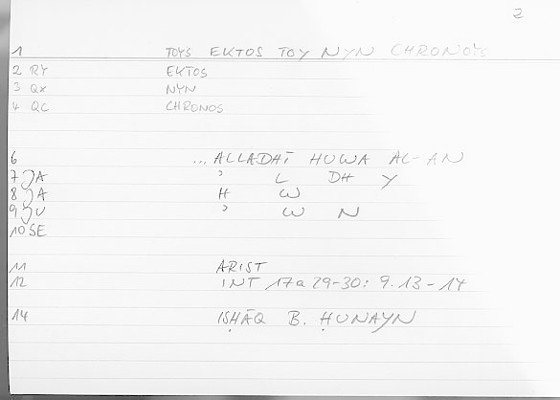 2
1 TOYS EKTOS TOY NYN CHRONOYS
2 RY EKTOS
3 QX NYN
4 QC CHRONOS
6 ...ALLADHĪ HUWA AL-AN
7 JA ' L DH Y
8 JA H W
9 JU ' W N
10 SE
11 ARIST
12 INT 17a 29-30: 9.13-14
14 ISḤĀQ B. ḤUNAYN